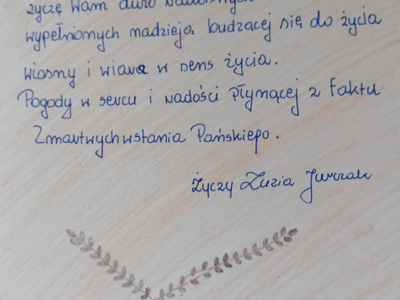 życzę Wam dużo radosnych
wypełnionych nadzieją, budzącej się do życia
wiosny i wiarą w sens życia.
Pogody w sercu i radości płynącej z faktu
Zmartwychwstania Pańskiego.
życzy Zuzia Jurczak